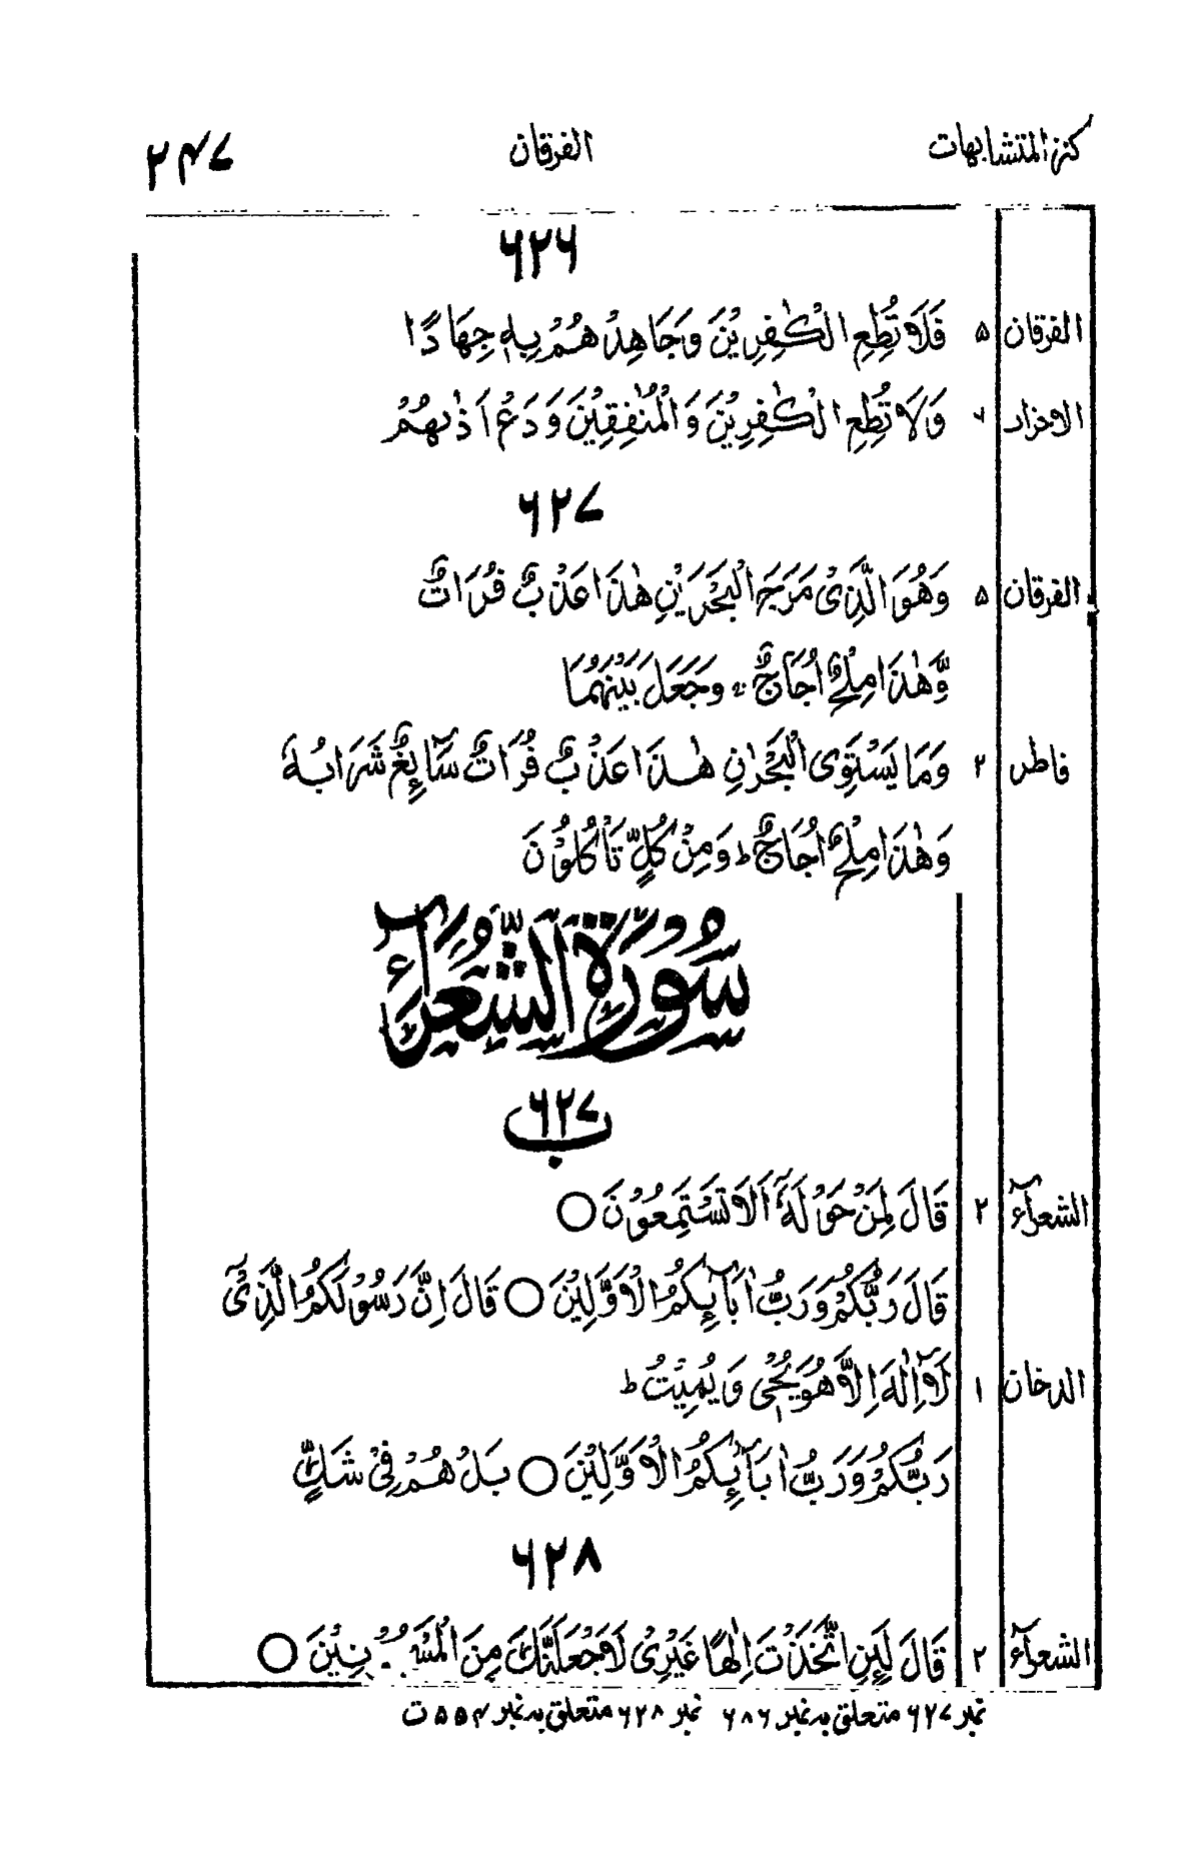 كنز المتشابهات الفرقان ۲۴۷
۶۲۶
الفرقان ۵ فَلَا تُطِعِ الْكٰفِرِيْنَ وَجَاهِدْهُمْ بِهٖ جِهَادًا
الاحزاب ۶ وَلَا تُطِعِ الْكٰفِرِيْنَ وَالْمُنٰفِقِيْنَ وَدَعْ اَذٰىهُمْ
۶۲۷
الفرقان ۵ وَهُوَ الَّذِىْ مَرَجَ الْبَحْرَيْنِ هٰذَا عَذْبٌ فُرَاتٌ
وَّهٰذَا مِلْحٌ اُجَاجٌ ۚ وَجَعَلَ بَيْنَهُمَا
فاطر ۲ وَمَا يَسْتَوِى الْبَحْرٰنِ هٰذَا عَذْبٌ فُرَاتٌ سَآئِغٌ شَرَابُهٗ
وَهٰذَا مِلْحٌ اُجَاجٌ ط وَمِنْ كُلٍّ تَاْكُلُوْنَ
سُوْرَةُ الشُّعَرَآءِ
۶۲۷ ب
الشعرآء ۲ قَالَ لِمَنْ حَوْلَهٗٓ اَلَا تَسْتَمِعُوْنَ ○
قَالَ رَبُّكُمْ وَرَبُّ اٰبَآئِكُمُ الْاَوَّلِيْنَ ○ قَالَ اِنَّ رَسُوْلَكُمُ الَّذِىْٓ
الدخان ۱ لَآ اِلٰهَ اِلَّا هُوَ يُحْىٖ وَيُمِيْتُ ط
رَبُّكُمْ وَرَبُّ اٰبَآئِكُمُ الْاَوَّلِيْنَ ○ بَلْ هُمْ فِىْ شَكٍّ
۶۲۸
الشعرآء ۲ قَالَ لَئِنِ اتَّخَذْتَ اِلٰهًا غَيْرِىْ لَاَجْعَلَنَّكَ مِنَ الْمَسْجُوْنِيْنَ ○
نمبر ۶۲۷ متعلق بہ نمبر ۶۸۶ نمبر ۶۲۸ متعلق بہ نمبر ۵۵۴ ت